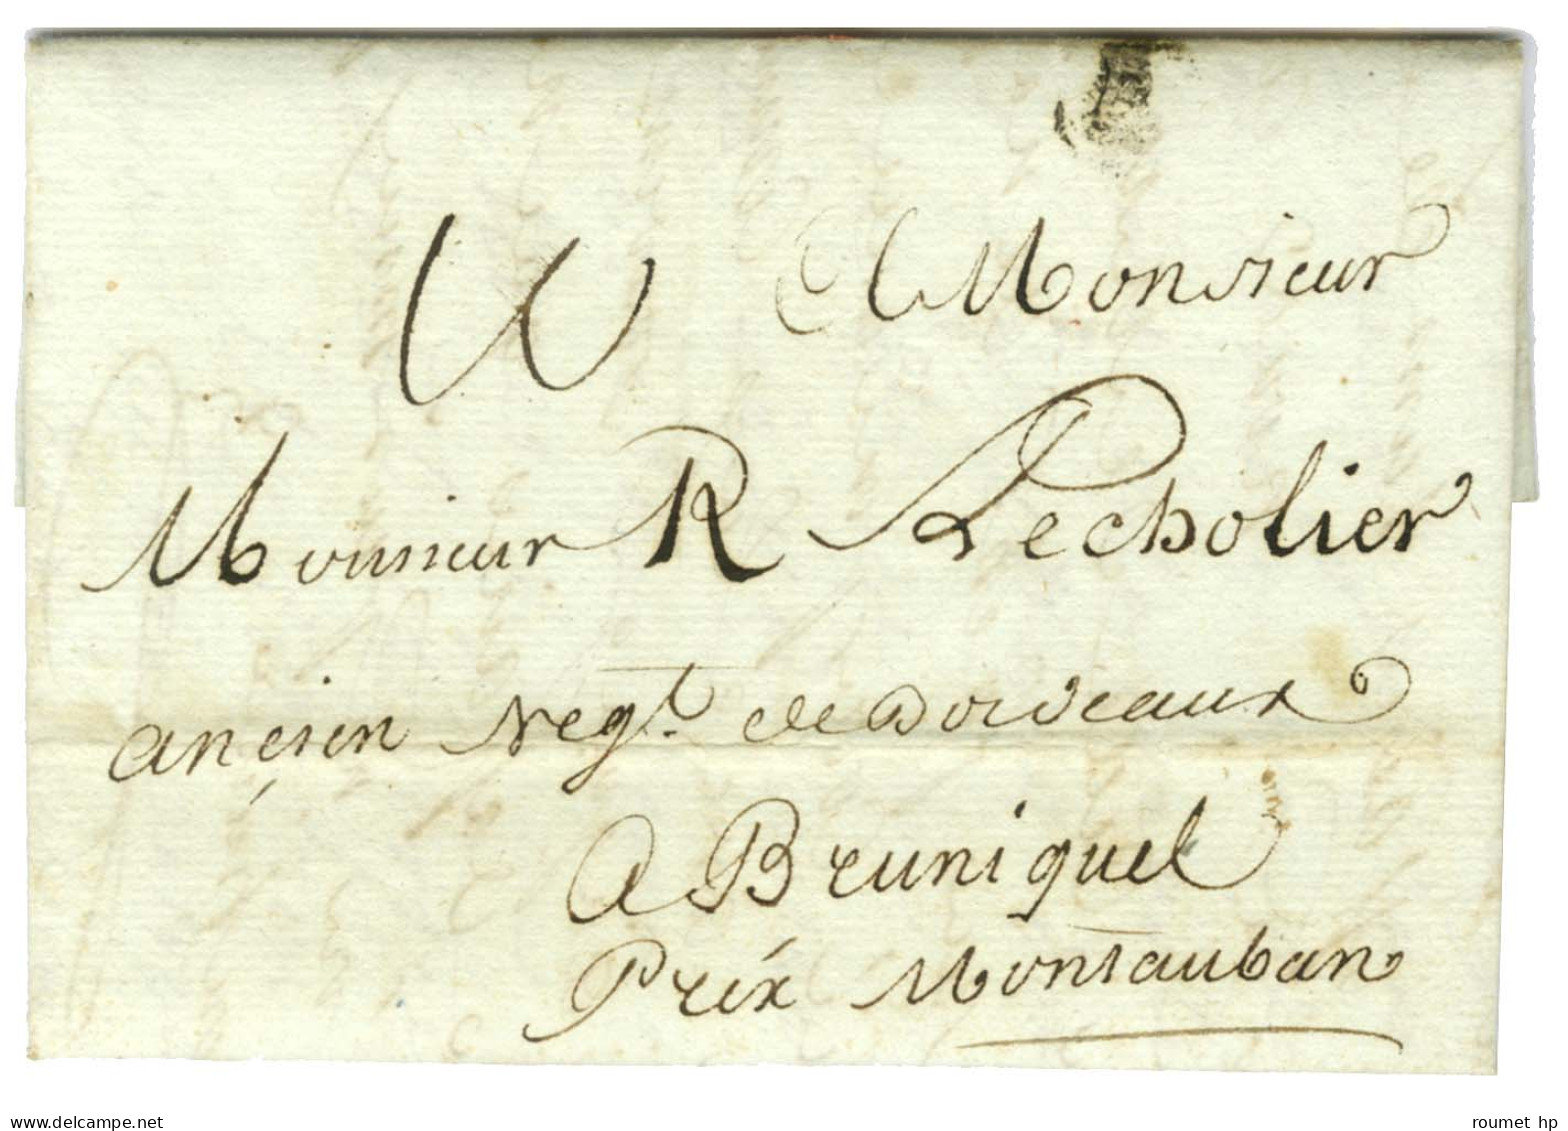 Monsieur
Monsieur R Lecholier
ançien Negt. de Bordeaux
a Bruniquel
Préix Montauban
delcampe.net
roumet hp